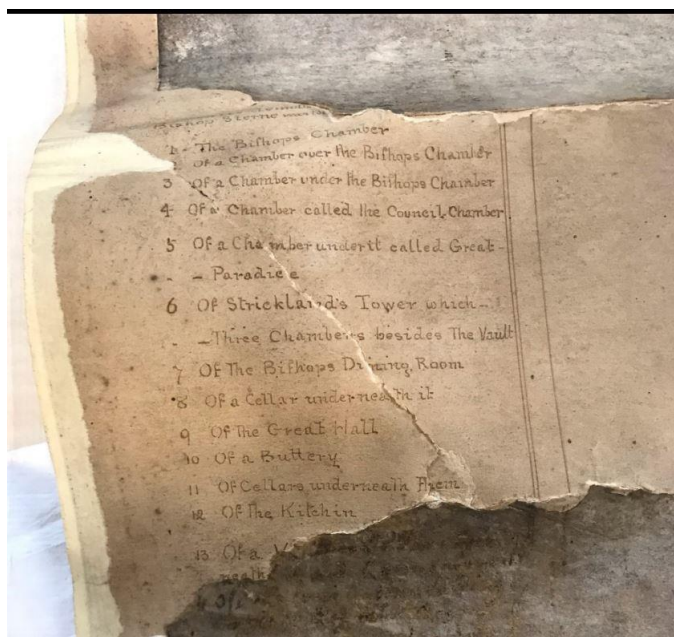 Bishop Sterne
1 - The Bishops Chamber
2 Of a Chamber over the Bishops Chamber
3 Of a Chamber under the Bishops Chamber
4 Of a Chamber called the Council Chamber
5 Of a Chamber under it called Great -
- - Paradice
6 Of Strickland's Tower which -
- - Three Chambers besides The Vault
7 Of The Bishops Dining Room
8 Of a Cellar underneath it
9 Of The Great Hall
10 Of a Buttery
11 Of Cellars underneath Them
12 Of The Kitchin
13 Of a